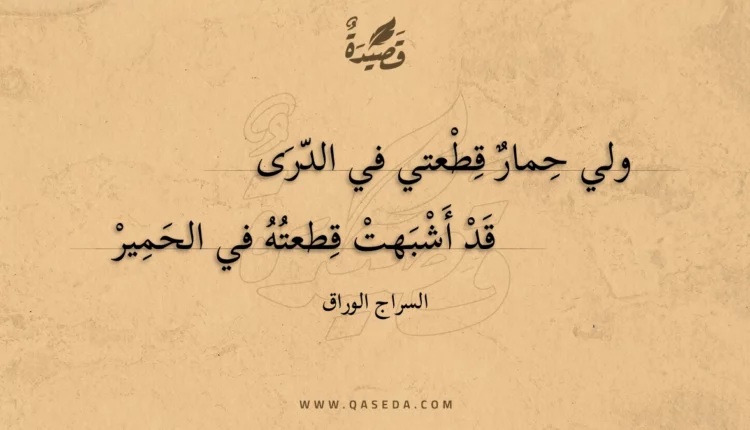 قَصِيْدَةٌ
ولي حِمارٌ قِطْعتي في الدّرَى
قَدْ أَشْبَهتْ قِطعتُهُ في الحَمِيرْ
السراج الوراق
WWW.QASEDA.COM